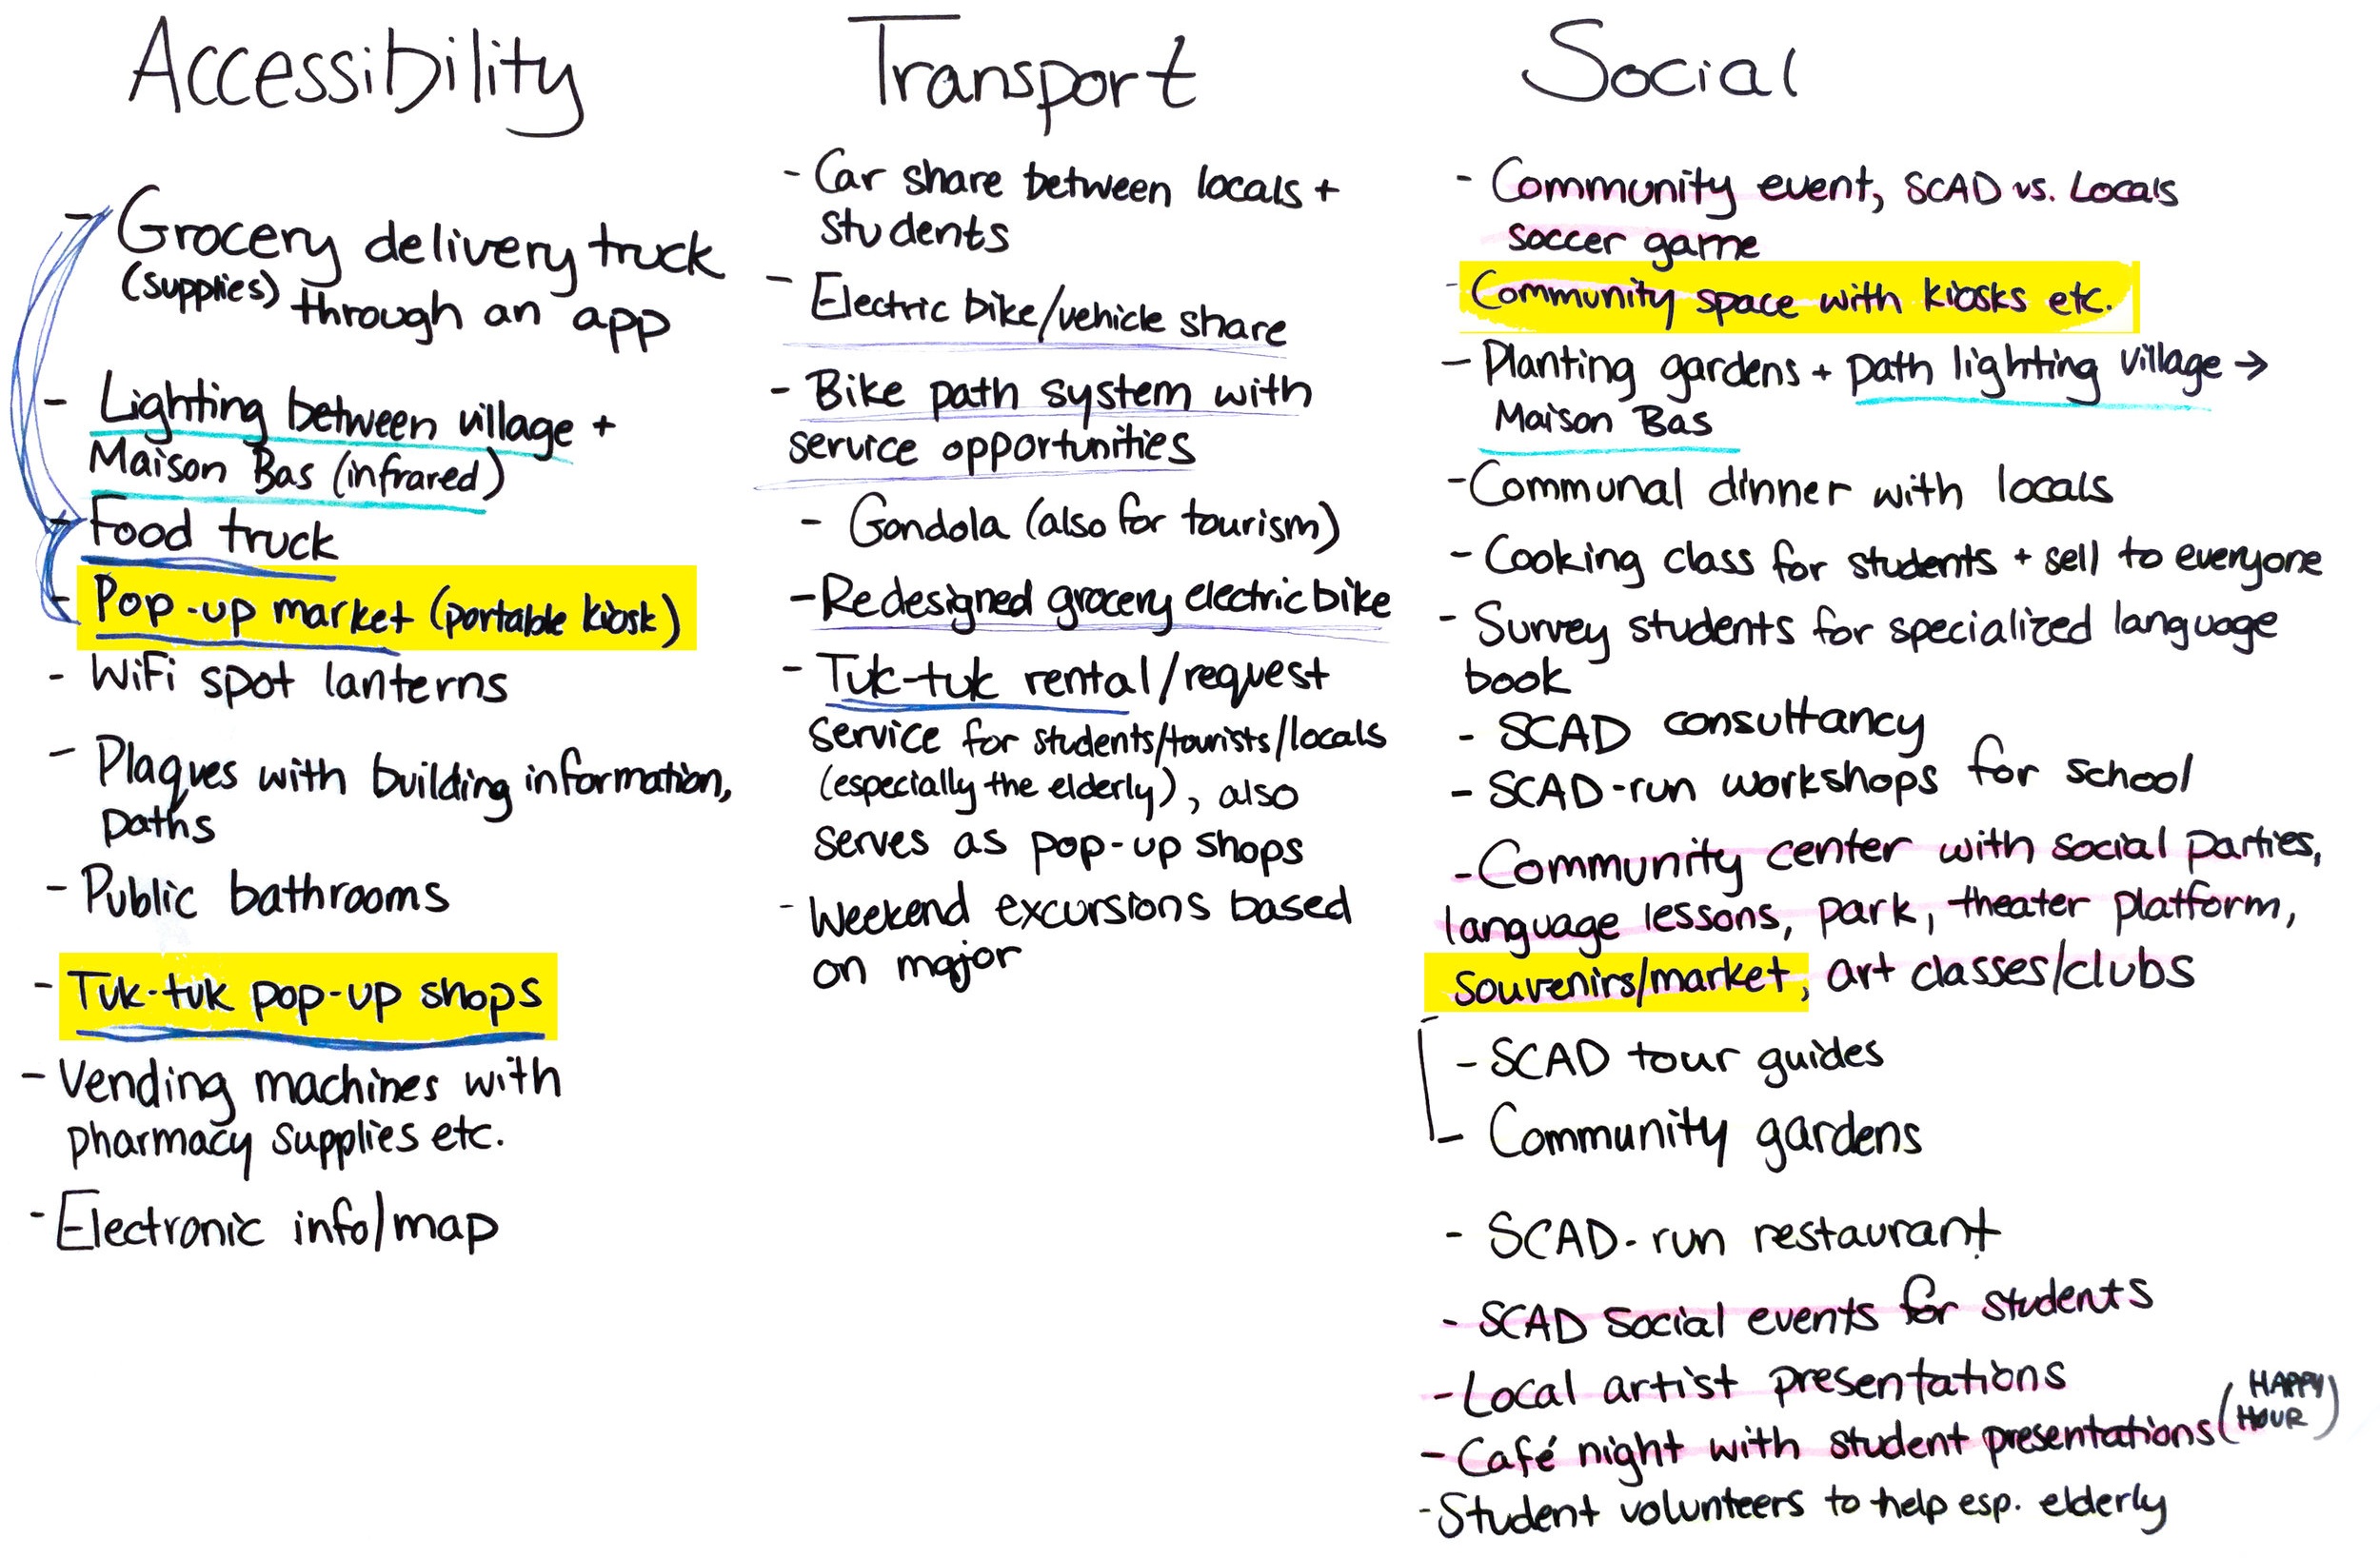 Accessibility
- Grocery delivery truck
(supplies) through an app
- Lighting between village +
Maison Bas (infrared)
- Food truck
- Pop-up market (portable kiosk)
- WiFi spot lanterns
- Plaques with building information,
paths
- Public bathrooms
- Tuk-tuk pop-up shops
- Vending machines with
pharmacy supplies etc.
- Electronic info/map
Transport
- Car share between locals +
students
- Electric bike/vehicle share
- Bike path system with
service opportunities
- Gondola (also for tourism)
- Redesigned grocery electric bike
- Tuk-tuk rental/request
service for students/tourists/locals
(especially the elderly), also
serves as pop-up shops
- Weekend excursions based
on major
Social
- Community event, SCAD vs. Locals
soccer game
- Community space with kiosks etc.
- Planting gardens + path lighting village →
Maison Bas
- Communal dinner with locals
- Cooking class for students + sell to everyone
- Survey students for specialized language
book
- SCAD consultancy
- SCAD-run workshops for school
- Community center with social parties,
language lessons, park, theater platform,
souvenirs/market, art classes/clubs
- SCAD tour guides
- Community gardens
- SCAD-run restaurant
- SCAD Social events for students
- Local artist presentations
- Café night with student presentations (HAPPY HOUR)
- Student volunteers to help esp. elderly